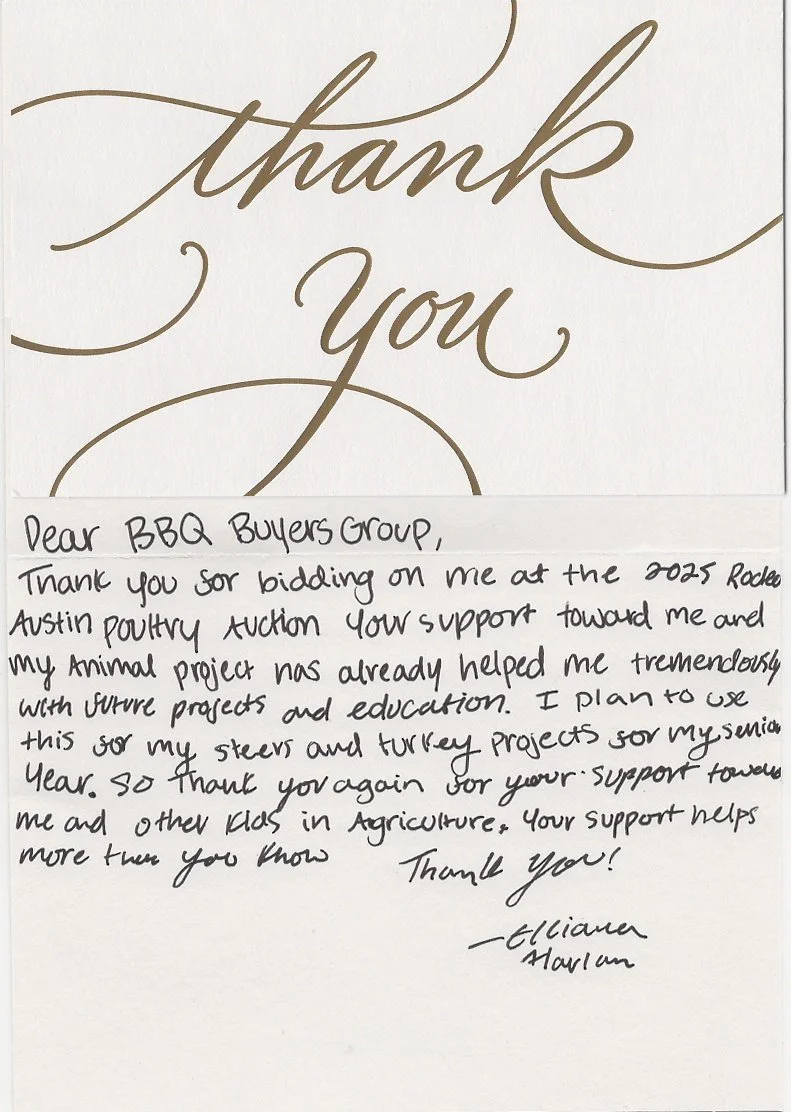 thank
you
Dear BBQ Buyers Group,
Thank you for bidding on me at the 2025 Rodeo
Austin poultry Auction Your support toward me and
my Animal project has already helped me tremendously
with future projects and education. I plan to use
this for my steers and turkey projects for my senior
year. So Thank you again for your support towards
me and other kids in Agriculture. Your support helps
more then you know Thank you!
- Elliana
Harlan